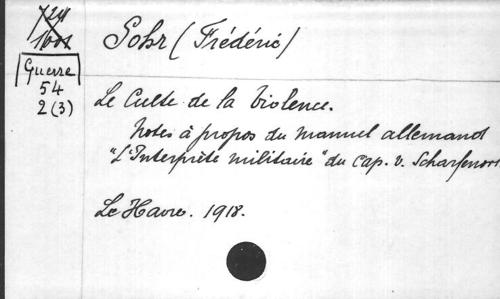 Sohr (Frédéric)
Guerre
54
2 (3)
Le Culte de la Violence.
Notes à propos du manuel allemand
"L'Interprète militaire" du Cap. v. Scharfenort
Le Havre. 1918.